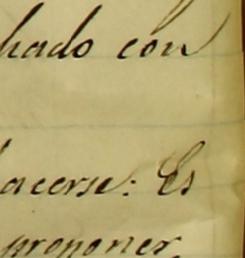 hado con
acerse: Es
proponer